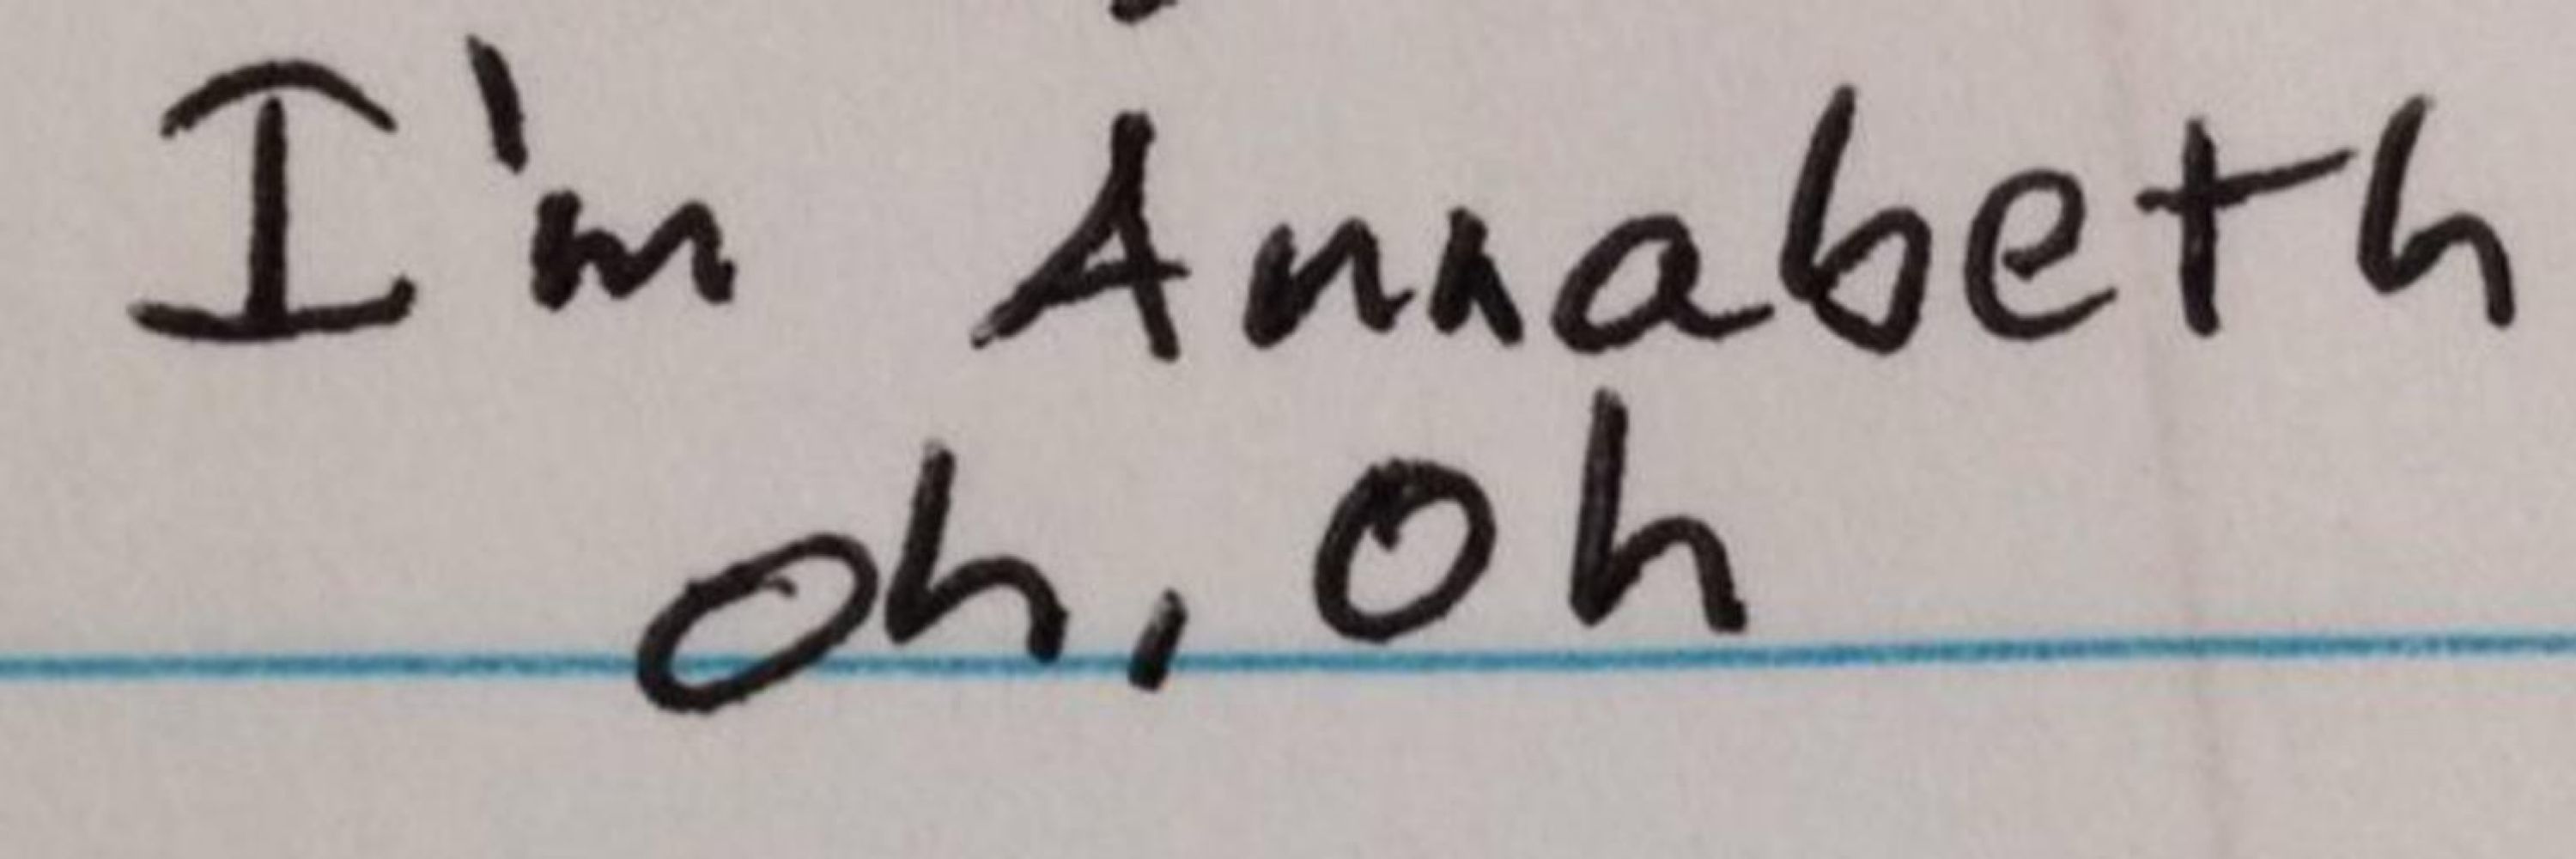 I'm Annabeth
oh, oh